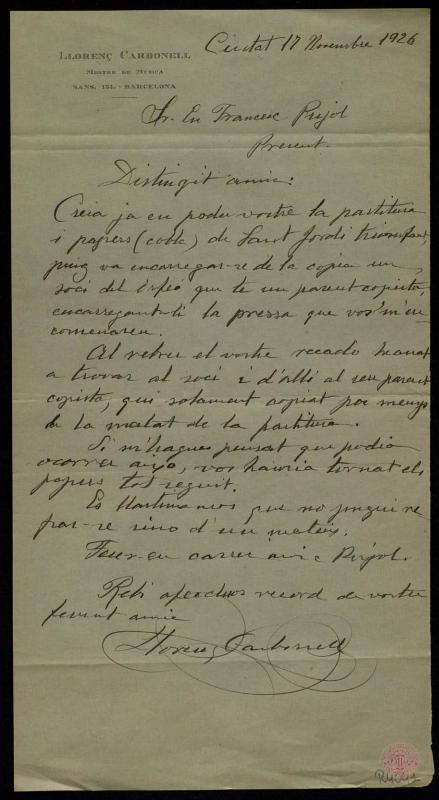 LLORENÇ CARBONELL
MESTRE DE MUSICA
SANS, 151. - BARCELONA
Ciutat 17 Novembre 1926
Sr. En Francesc Pujol
Present.
Distingit amic:
Creia ja en poder vostre la partitura
i papers (cobla) de Sant Jordi triomfant,
puig va encarregar-se de la copia un
soci del Orfeó que te un parent copista,
encarregant-li la pressa que vos m'en
comenareu.
Al rebre el vostre recado he anat
a trovar al soci i d'allí al seu parent
copista, qui solament copiat poc menys
de la meitat de la partitura.
Si m'hagues pensat que podia
ocorrer aixo, vos hauria tornat els
papers tot seguit.
Es llastima que no pugui
par-se sino d'un mateix.
Feu-en carrec amic Pujol.
Rebi afectuos record de vostre
fervent amic
Llorenç Carbonell